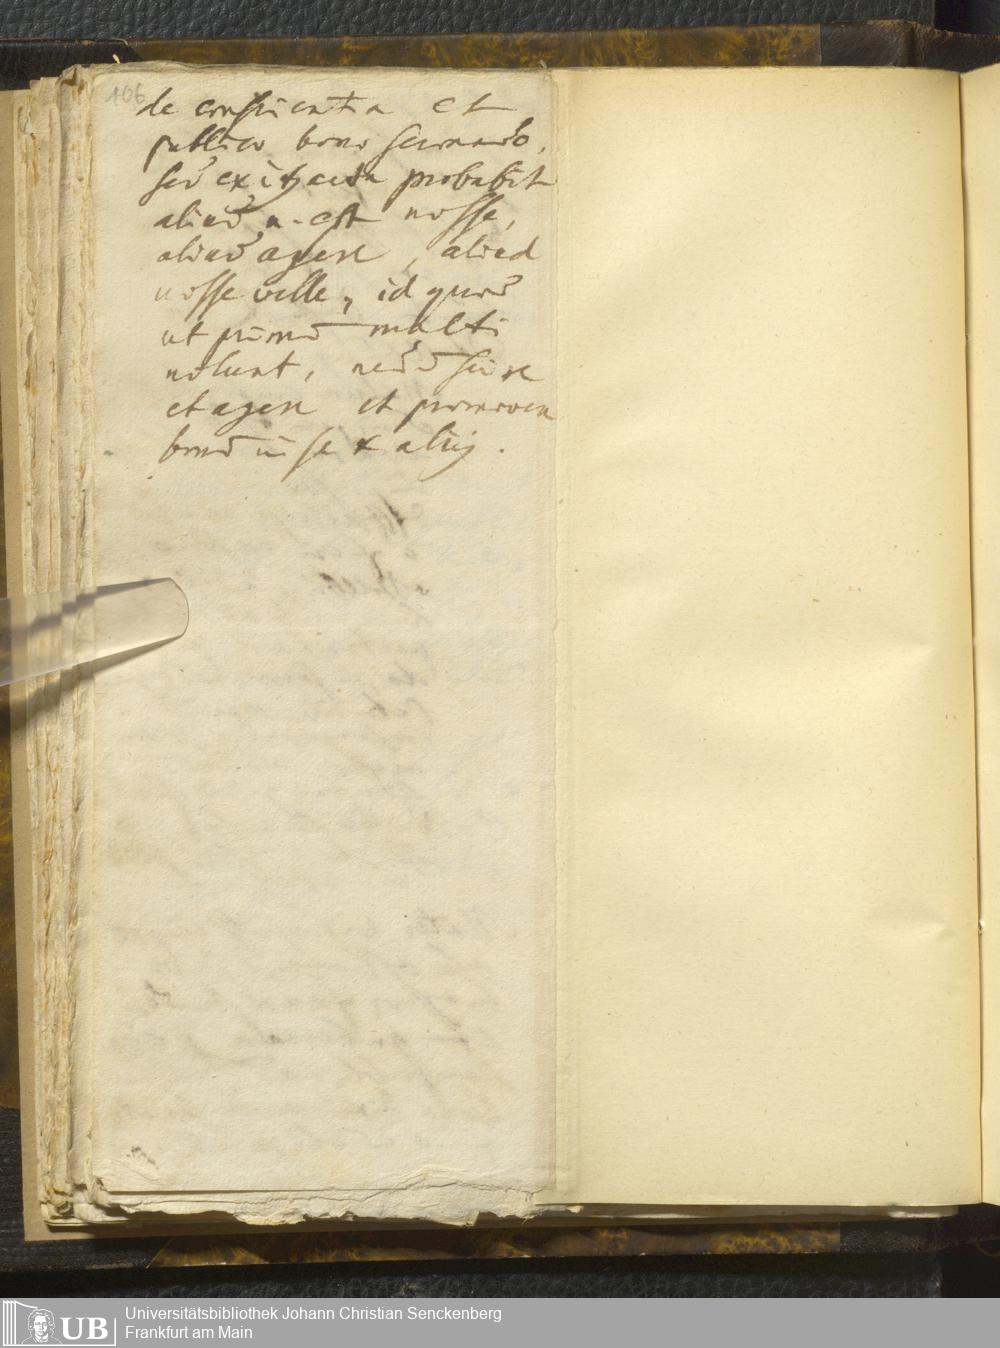 106
de conscientia et
publico bono
sed ex probabit
aliud n. est nosse,
aliud agere, aliud
nosse velle, id quod
ut primū multi
nolunt, scire
et agere et promovere
bonū in se & aliis.
UB
Universitätsbibliothek Johann Christian Senckenberg
Frankfurt am Main